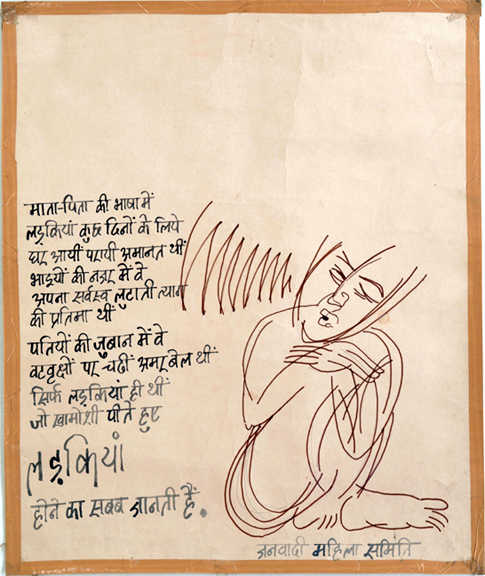 माता-पिता की भाषा में
लड़कियां कुछ दिनों के लिये
घर आयीं परायी अमानत थीं
भाइयों की नज़र में वे
अपना सर्वस्व लुटाती त्याग
की प्रतिमा थीं
पतियों की जुबान में वे
वटवृक्षों पर चढीं अमरबेल थीं
सिर्फ लड़कियां ही थीं
जो खामोशी पीते हुए
लड़कियां
होने का सबब जानती हैं.
जनवादी महिला समिति